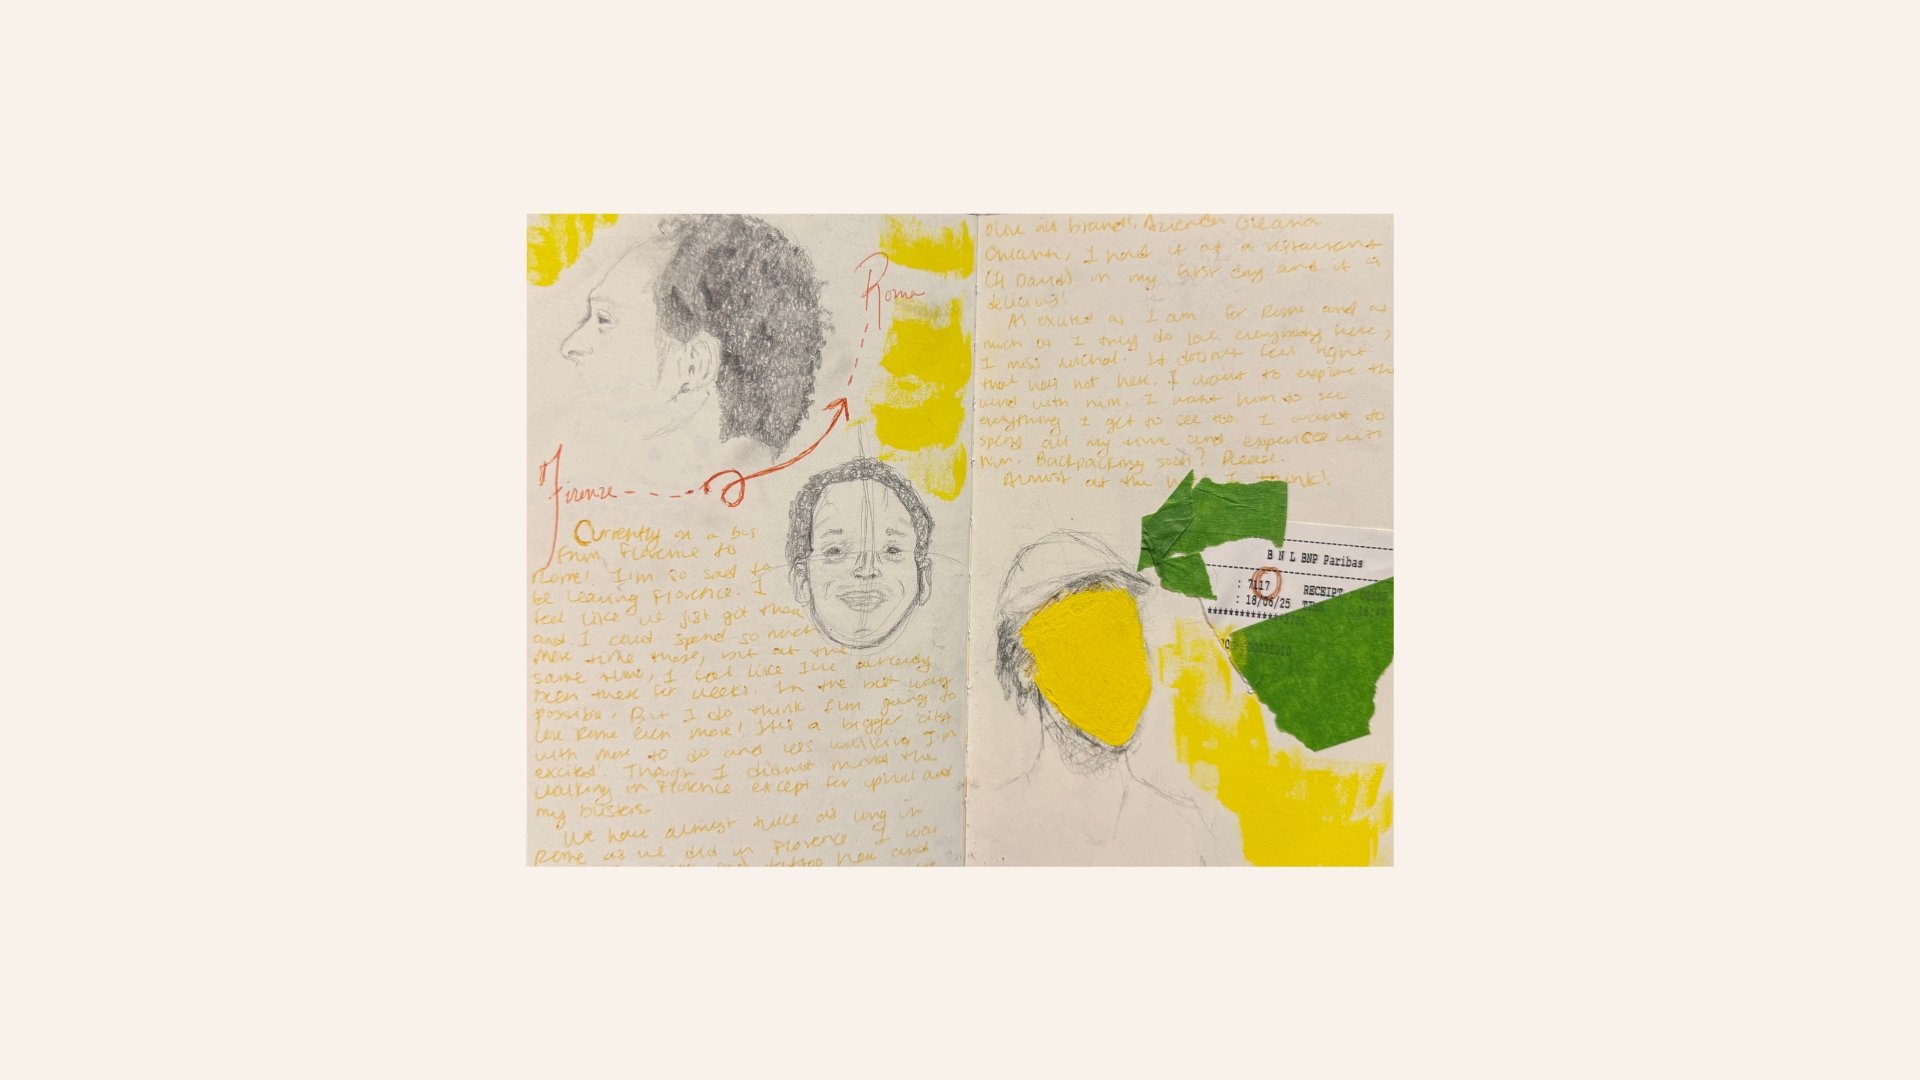 Roma
Firenze
Currently on a bus
from Florence to
Rome! I'm so sad to
be leaving Florence. I
feel like we just got there
and I could spend so much
more time there, but at the
same time, I feel like I've already
been there for weeks. In the best way
possible. But I do think I'm going to
love Rome even more! It's a bigger city
with more to do and less walking I'm
excited. Though I didn't mind the
walking in Florence except for uphill and
my blisters.
We have almost twice as long in
Rome as we did in Florence. I
tattoo and
olive oil brand!
I had it at a restaurant
(Il David) on my first day and it is
delicious!
As excited as I am for Rome and as
much as I truly do love everybody here,
I miss It doesn't feel right
that he's not here. I want to explore the
world with him. I want him to see
everything I get to see too. I want to
spend all my time and experiences with
him. Backpacking soon? Please.
Almost at the I think!
B N L BNP Paribas
: 7117 RECEIPT
: 18/06/25